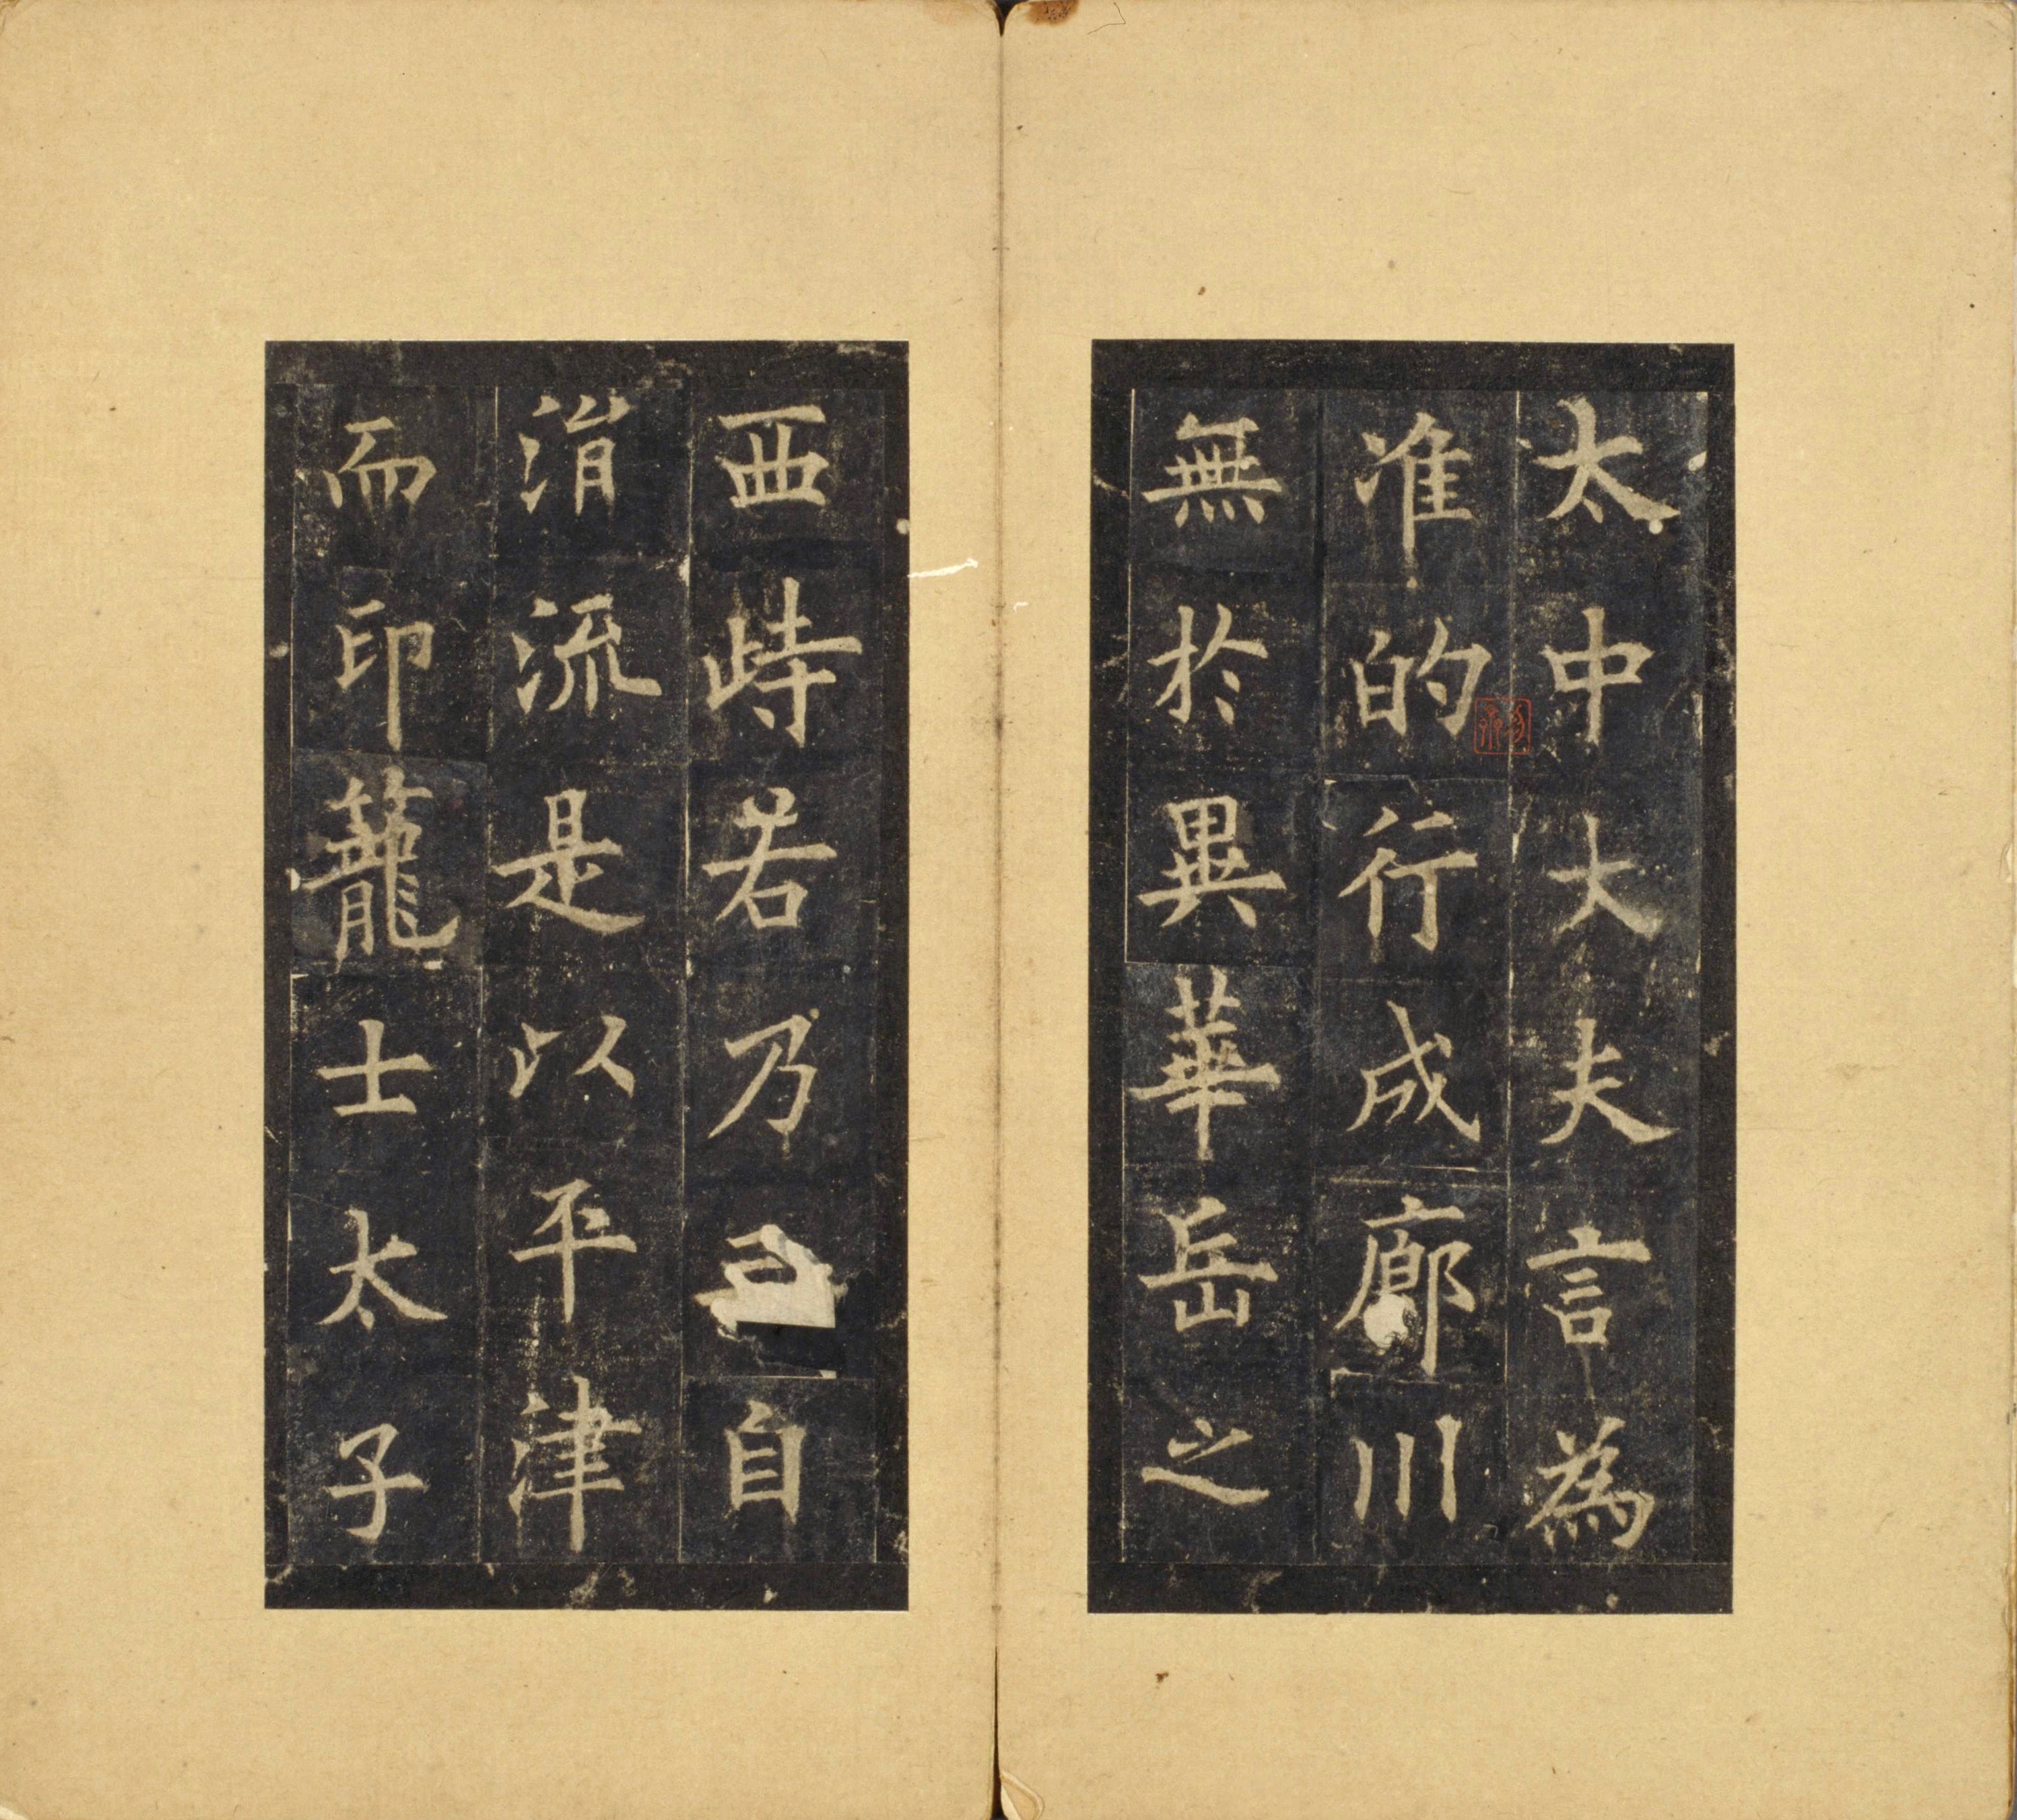 太中大夫言為
准的行成廊川
無於異華岳之
西峙若乃自
消流是以平津
而印蘢士太子